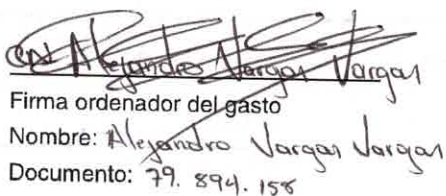 Alejandro Vargas Vargas
Firma ordenador del gasto
Nombre: Alejandro Vargas Vargas
Documento: 79. 894. 158